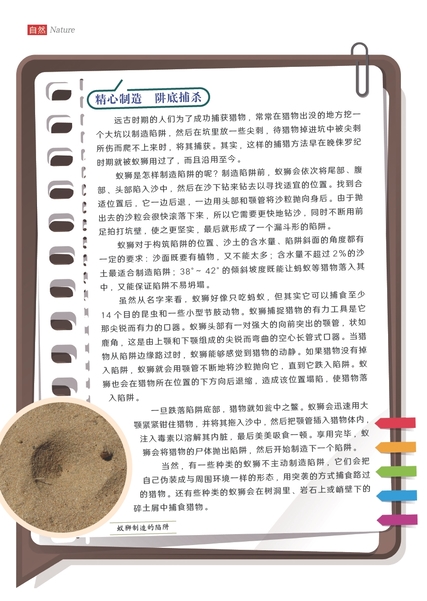 自然 Nature
精心制造 阱底捕杀
远古时期的人们为了成功捕获猎物，常常在猎物出没的地方挖一
个大坑以制造陷阱，然后在坑里放一些尖刺，待猎物掉进坑中被尖刺
所伤而爬不上来时，将其捕获。其实，这样的捕猎方法早在晚侏罗纪
时期就被蚁狮用过了，而且沿用至今。
蚁狮是怎样制造陷阱的呢？制造陷阱前，蚁狮会依次将尾部、腹
部、头部陷入沙中，然后在沙下钻来钻去以寻找适宜的位置。找到合
适位置后，它一边后退，一边用头部和颚管将沙粒抛向身后。由于抛
出去的沙粒会很快滚落下来，所以它需要更快地钻沙，同时不断用前
足拍打坑壁，使之更坚实，最后就形成了一个漏斗形的陷阱。
蚁狮对于构筑陷阱的位置、沙土的含水量、陷阱斜面的角度都有
一定的要求：沙面既要有植物，又不能太多；含水量不超过2%的沙
土最适合制造陷阱；38°~ 42°的倾斜坡度既能让蚂蚁等猎物落入其
中，又能保证陷阱不易坍塌。
虽然从名字来看，蚁狮好像只吃蚂蚁，但其实它可以捕食至少
14个目的昆虫和一些小型节肢动物。蚁狮捕捉猎物的有力工具是它
那尖锐而有力的口器。蚁狮头部有一对强大的向前突出的颚管，状如
鹿角，这是由上颚和下颚组成的尖锐而弯曲的空心长管式口器。当猎
物从陷阱边缘路过时，蚁狮能够感觉到猎物的动静。如果猎物没有掉
入陷阱，蚁狮就会用颚管不断地将沙粒抛向它，直到它跌入陷阱。蚁
狮也会在猎物所在位置的下方向后退缩，造成该位置塌陷，使猎物落
入陷阱。
一旦跌落陷阱底部，猎物就如瓮中之鳖。蚁狮会迅速用大
颚紧紧钳住猎物，并将其拖入沙中，然后把颚管插入猎物体内，
注入毒素以溶解其内脏，最后美美吸食一顿。享用完毕，蚁
狮会将猎物的尸体抛出陷阱，然后开始制造下一个陷阱。
当然，有一些种类的蚁狮不主动制造陷阱，它们会把
自己伪装成与周围环境一样的形态，用突袭的方式捕食路过
的猎物。还有些种类的蚁狮会在树洞里、岩石上或峭壁下的
碎土屑中捕食猎物。
蚁狮制造的陷阱